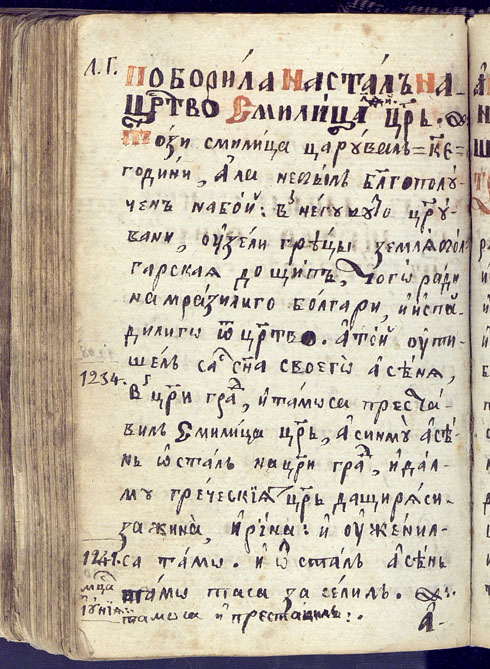 Л.Г.
По Борила насталъ на
црⷭ҇тво Смилица црь.
този смилица царувалъ =к҃е=
години, а́ла не вы́лъ благополу
ченъ на бой: въ негувуто цру
вани, оу҆зели гръцы земля бол
гарская до щипъ, чого ради
намразилиго болгари, и испа
дилиго ѿ црⷭ҇тво. а той оути
шелъ са съ сн҃а своего а҆сѣня,
1234.
въ цри гра, и҆ тамо са преста
вилъ Смилица црь, а҆ синму а҆сѣ
нь ѡ҆сталъ на цри гра, и҆ дал
му греческїѧ црь дащиря си
за жина, И҆рина: и҆ оу҆женил
са тамо. и҆ ѡ҆сталъ а҆сѣнь
1241.
мц҃а
іу҆нїа:
тамо та са заселилъ.
тамо са и҆ преставилъ:.
а҆